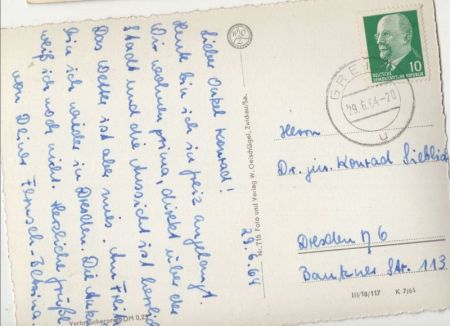 29.6.64
Lieber Onkel Konrad!
Heute bin ich in Greiz angelangt.
Wir wohnen prima, direkt über der
Stadt und die Aussicht ist herrlich.
Das Wetter ist aber mies. Am Frei
bin ich wieder in Dresden. Die
weiß ich noch nicht. Herzliche Grüße
von Deiner
Verbraucherpreis DM 0,2
Nr. 715 Foto und Verlag W. Oeschlägel, Zwickau/Sa.
DEUTSCHE
DEMOKRATISCHE REPUBLIK
10
GREIZ
29.6.64-20
u
Herrn
Dr. jur. Konrad Sieblich
Dresden N 6
Bautzner Str. 113
III/18/117 K 7/61